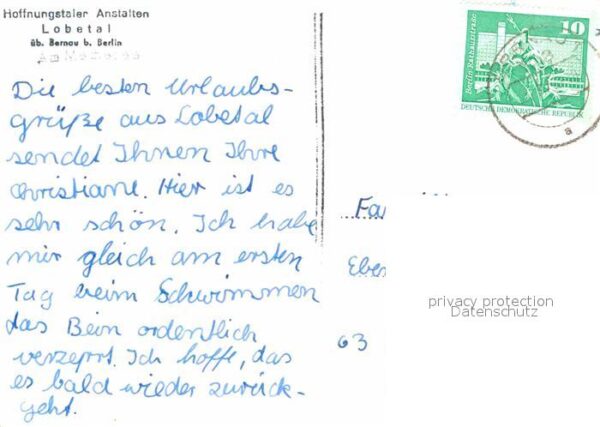 Hoffnungstaler Anstalten
Lobetal
üb. Bernau b. Berlin
Die besten Urlaubs-
grüße aus Lobetal
sendet Ihnen Ihre
Christiane. Hier ist es
sehr schön. Ich habe
mir gleich am ersten
Tag beim Schwimmen
das Bein ordentlich
verzerrt. Ich hoffe, das
es bald wieder zurück-
geht.
10
Berlin, Rathausstraße
DEUTSCHE DEMOKRATISCHE REPUBLIK
a
Fa
Eber
63
privacy protection
Datenschutz